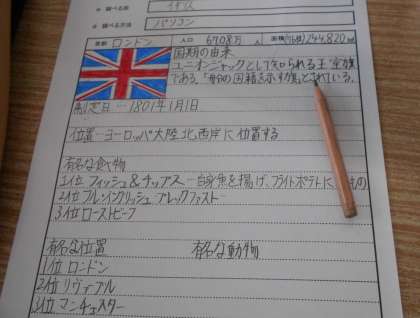 調べる国 イギリス
調べる方法 パソコン
首都 ロンドン 人口 6708万 人 面積 244,820
国旗の由来
ユニオンジャックとして知られる王室旗
である。「船の国籍を示す旗」とされている。
制定日ー1801年1月1日
位置ーヨーロッパ大陸北西岸に位置する
有名な食物
1位 フィッシュ&チップスー白身魚を揚げ、フライドポテトに
2位 フルイングリッシュブレックファスト
3位 ローストビーフ
有名な位置 有名な動物
1位 ロンドン
2位 リヴァプル
3位 マンチェスター